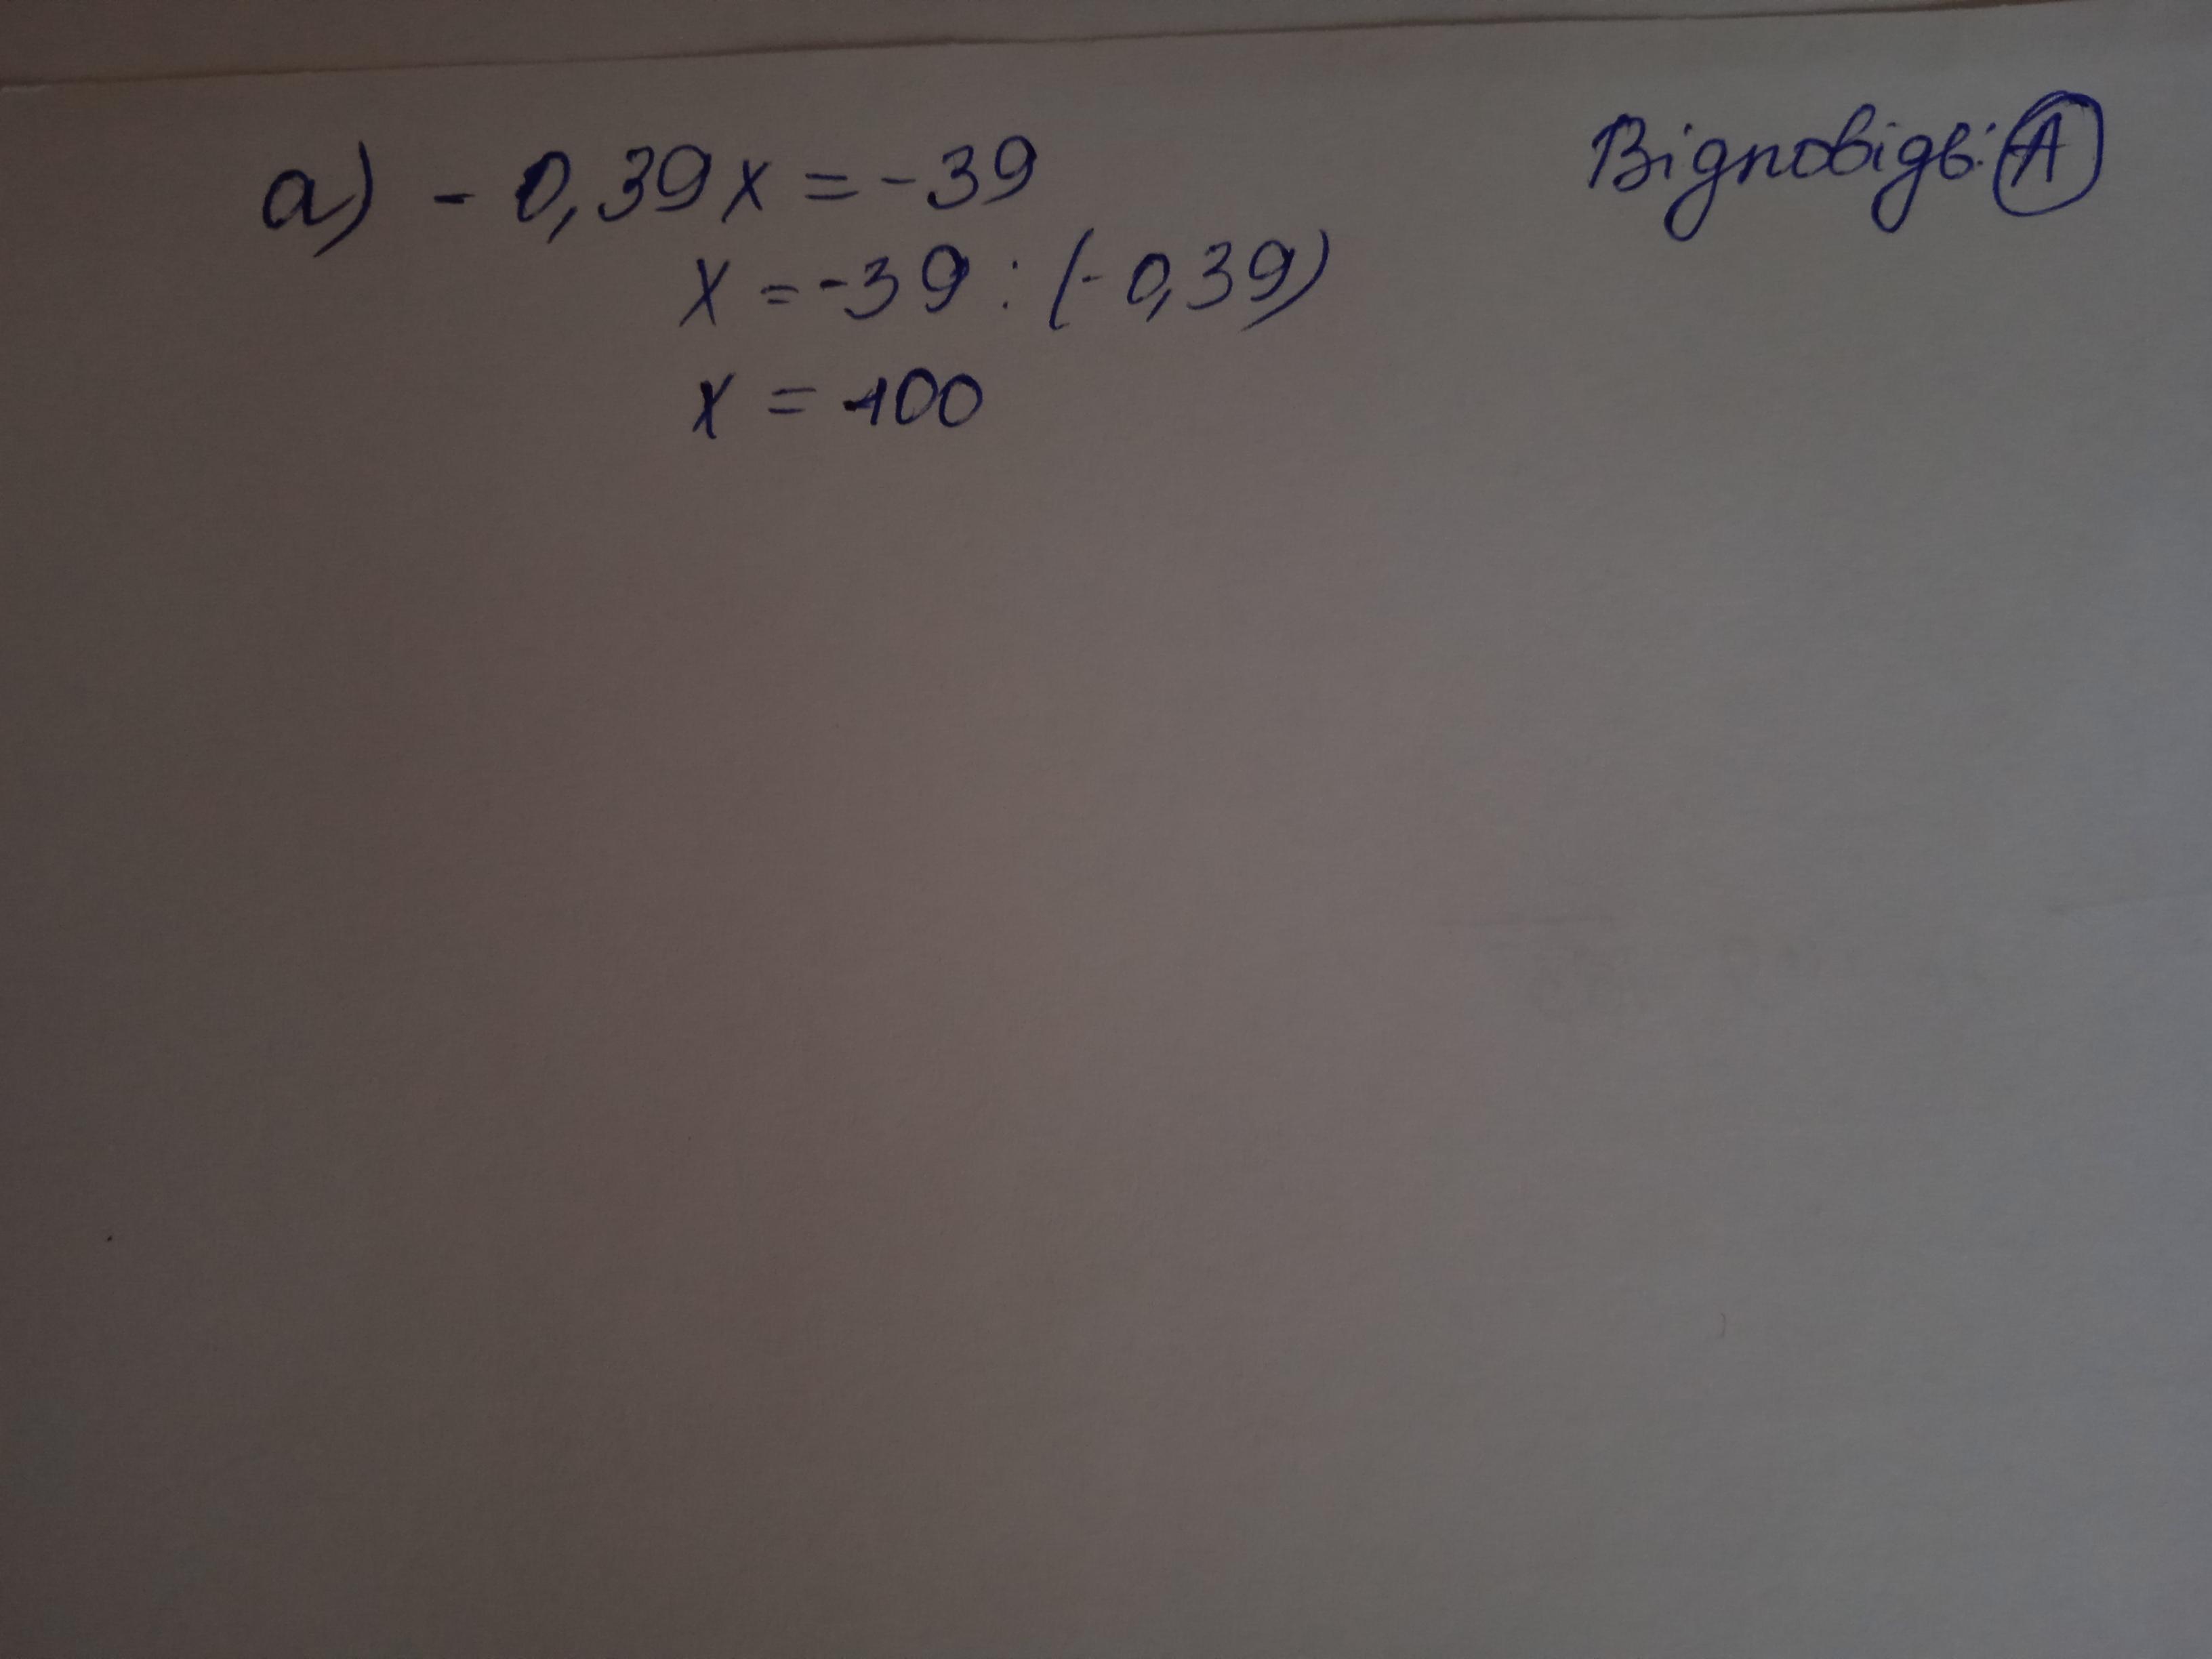 а) - 0,39x = -39
x = -39 : (- 0,39)
x = 100
Відповідь: А